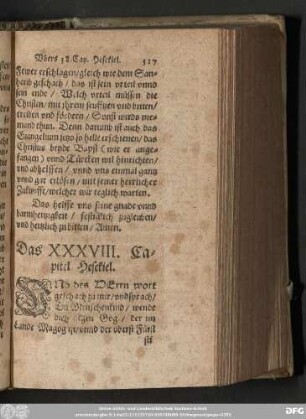 Vbers 38. Cap. Hesekiel. 327
Fewer erschlagen / gleich wie dem San-
herib geschach / das ist sein vrteil vnnd
sein ende / Welch vrteil müssen die
Christen / mit jhrem seufftzen vnd bitten /
treiben vnd fördern / Sonst wirds nie-
mand thun. Denn darumb ist auch das
Euangelium jtzo so helle erschienen / das
Christus beyde Bapst (wie er ange-
fangen) vnnd Türcken wil hinrichten /
vnd abhelffen / vnnd vns einmal gantz
vnnd gar erlösen / mit seiner herrlicher
Zukunfft / welcher wir teglich warten.
Das helffe vns seine gnade vnnd
barmhertzigkeit / festiglich zugleuben /
vnd hertzlich zu bitten / Amen.
Das XXXVIII. Ca-
pitel Hesekiel.
VND des HErrn wort
geschach zu mir / vnd sprach /
Du Menschenkind / wende
dich gegen Gog / der im
Lande Magog ist / vnnd der oberst Fürst